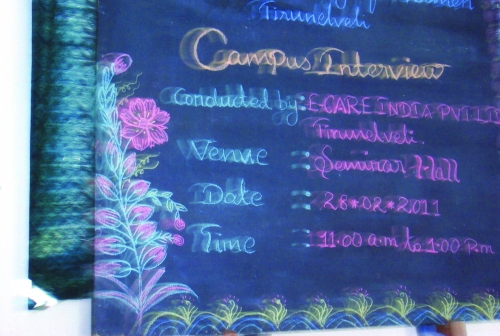 Tirunelveli
Campus Interview
Conducted by: E-CARE INDIA PVT LTD
Tirunelveli.
Venue : Seminar Hall
Date : 28*02*2011
Time : 11.00 a.m to 1.00 P.m